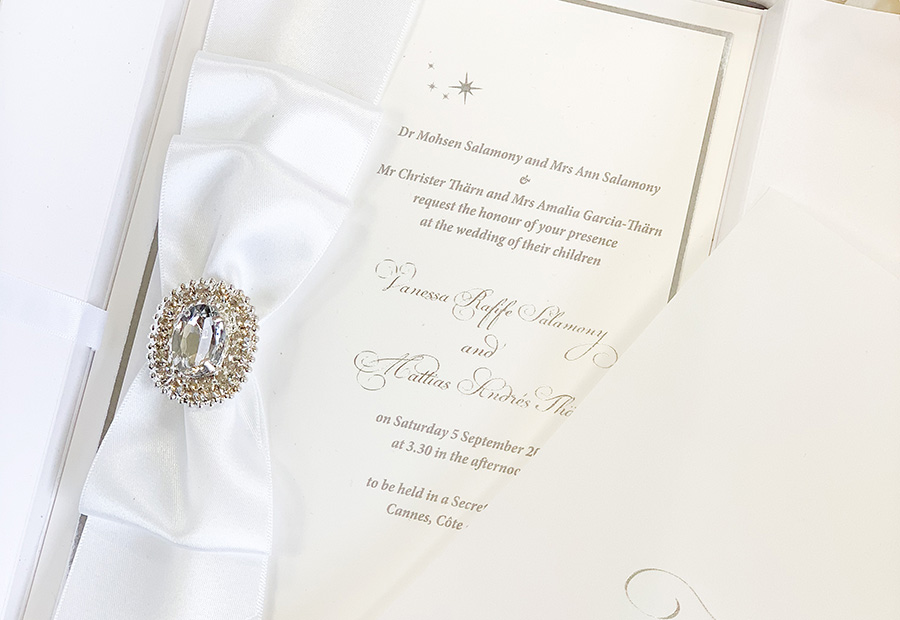 Dr Mohsen Salamony and Mrs Ann Salamony
&
Mr Christer Thärn and Mrs Amalia Garcia-Thärn
request the honour of your presence
at the wedding of their children
Vanessa Rafife Salamony
and
Mattias Andrés
on Saturday 5 September
at 3.30 in the
to be held in a
Cannes, Côte